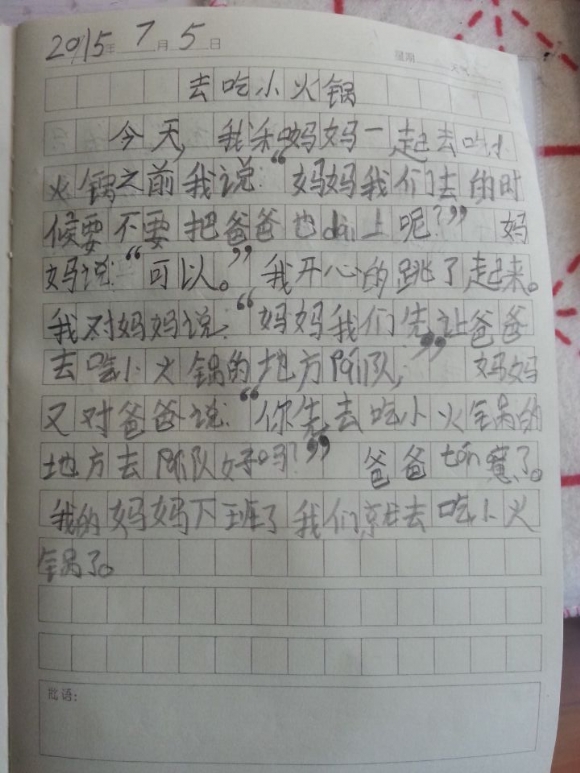 2015年 7月 5日 星期 天气
去吃小火锅
今天，我和妈妈一起去吃小
火锅之前我说：“妈妈我们去的时
候要不要把爸爸也dài上呢？”妈
妈说：“可以。”我开心的跳了起来。
我对妈妈说：“妈妈我们先让爸爸
去吃小火锅的地方所队，”妈妈
又对爸爸说：“你先去吃小火锅的
地方去所队好吗？”爸爸tón意了。
我的妈妈下班了我们就去吃小火
锅了。
批语：